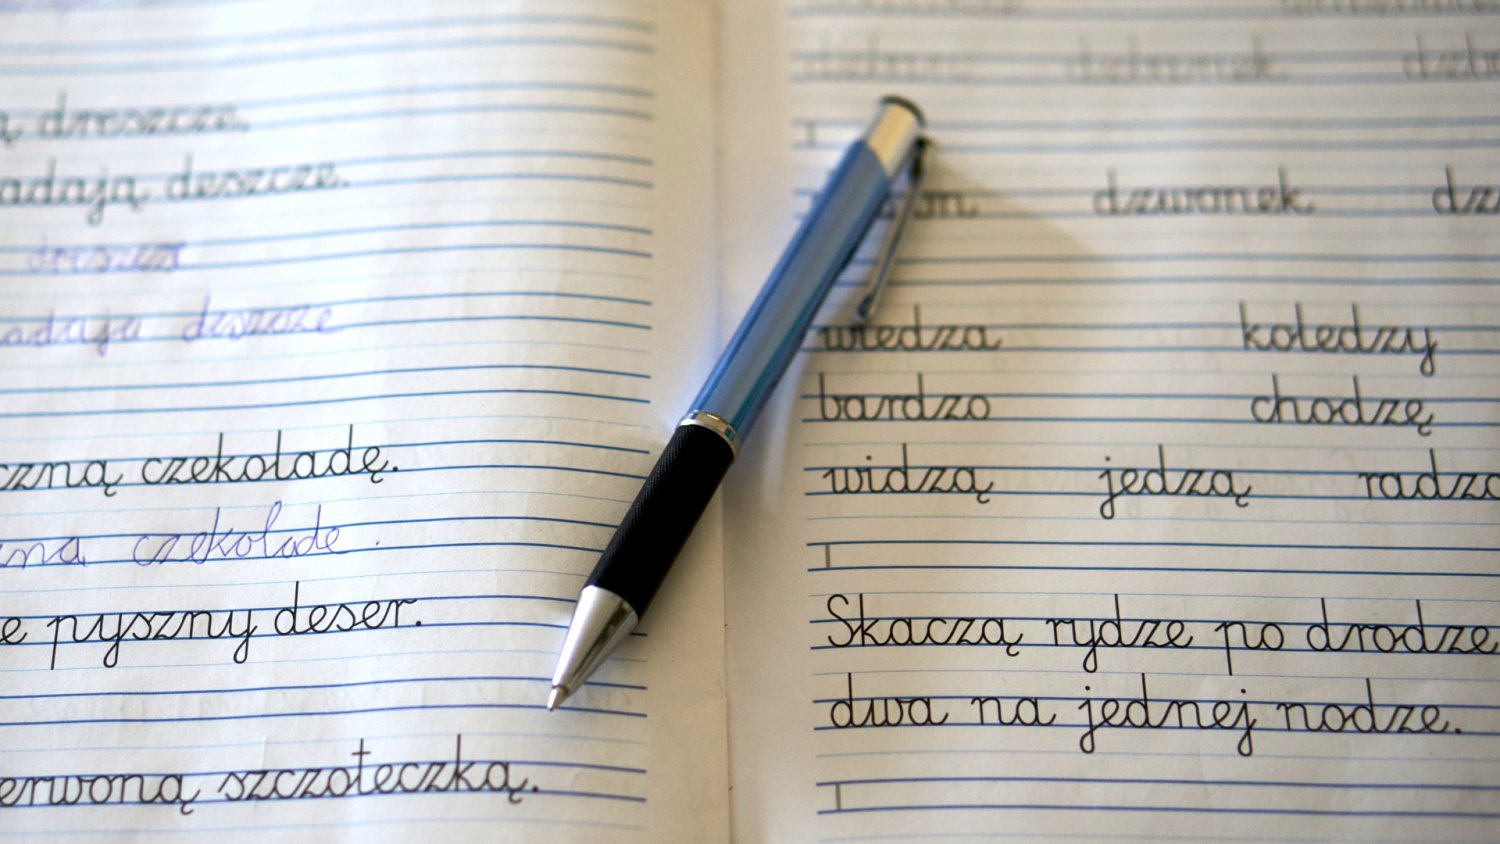 ą dreszcze,
adają deszcze.
adaja deszcze
czną czekoladę.
zna czekolade.
e pyszny deser.
erwoną szczoteczką.
dzbanek
dzwonek
wiedza koledzy
bardzo chodzę
widzą jedzą radzą
Skaczą rydze po drodze
dwa na jednej nodze.